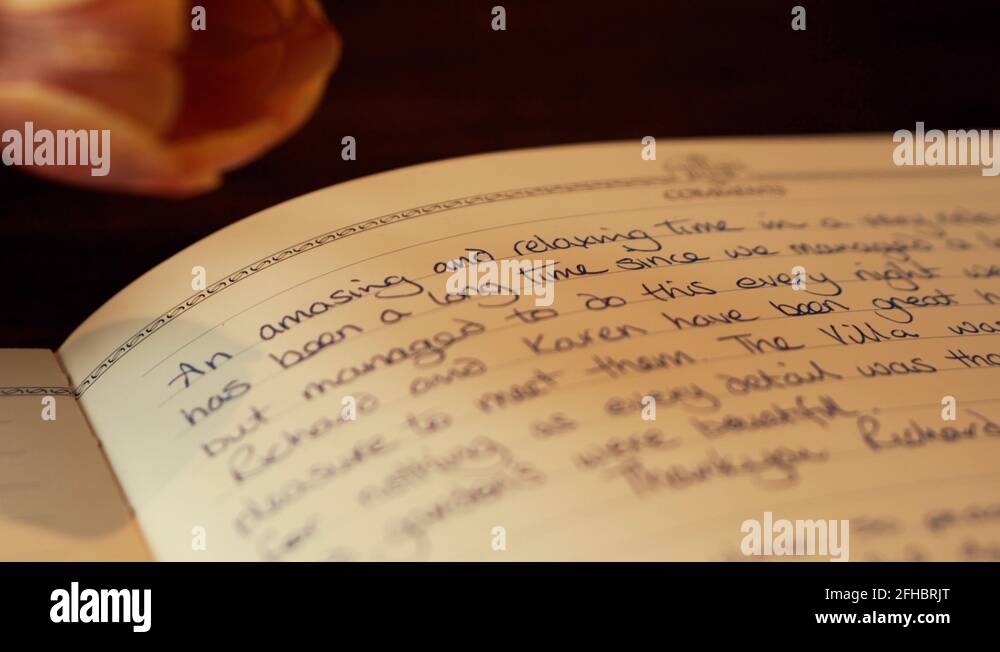 COMMENTS
An amasing and relaxing time in a very
has been a long time since we managed a
but managed to do this every night we
Richard and Karen have been great
pleasure to meet them The Villa was
for nothing as every detail was
gardens were beautiful.
Thankyou Richard
alamy
a
alamy
Image ID: 2FHBRJT
www.alamy.com